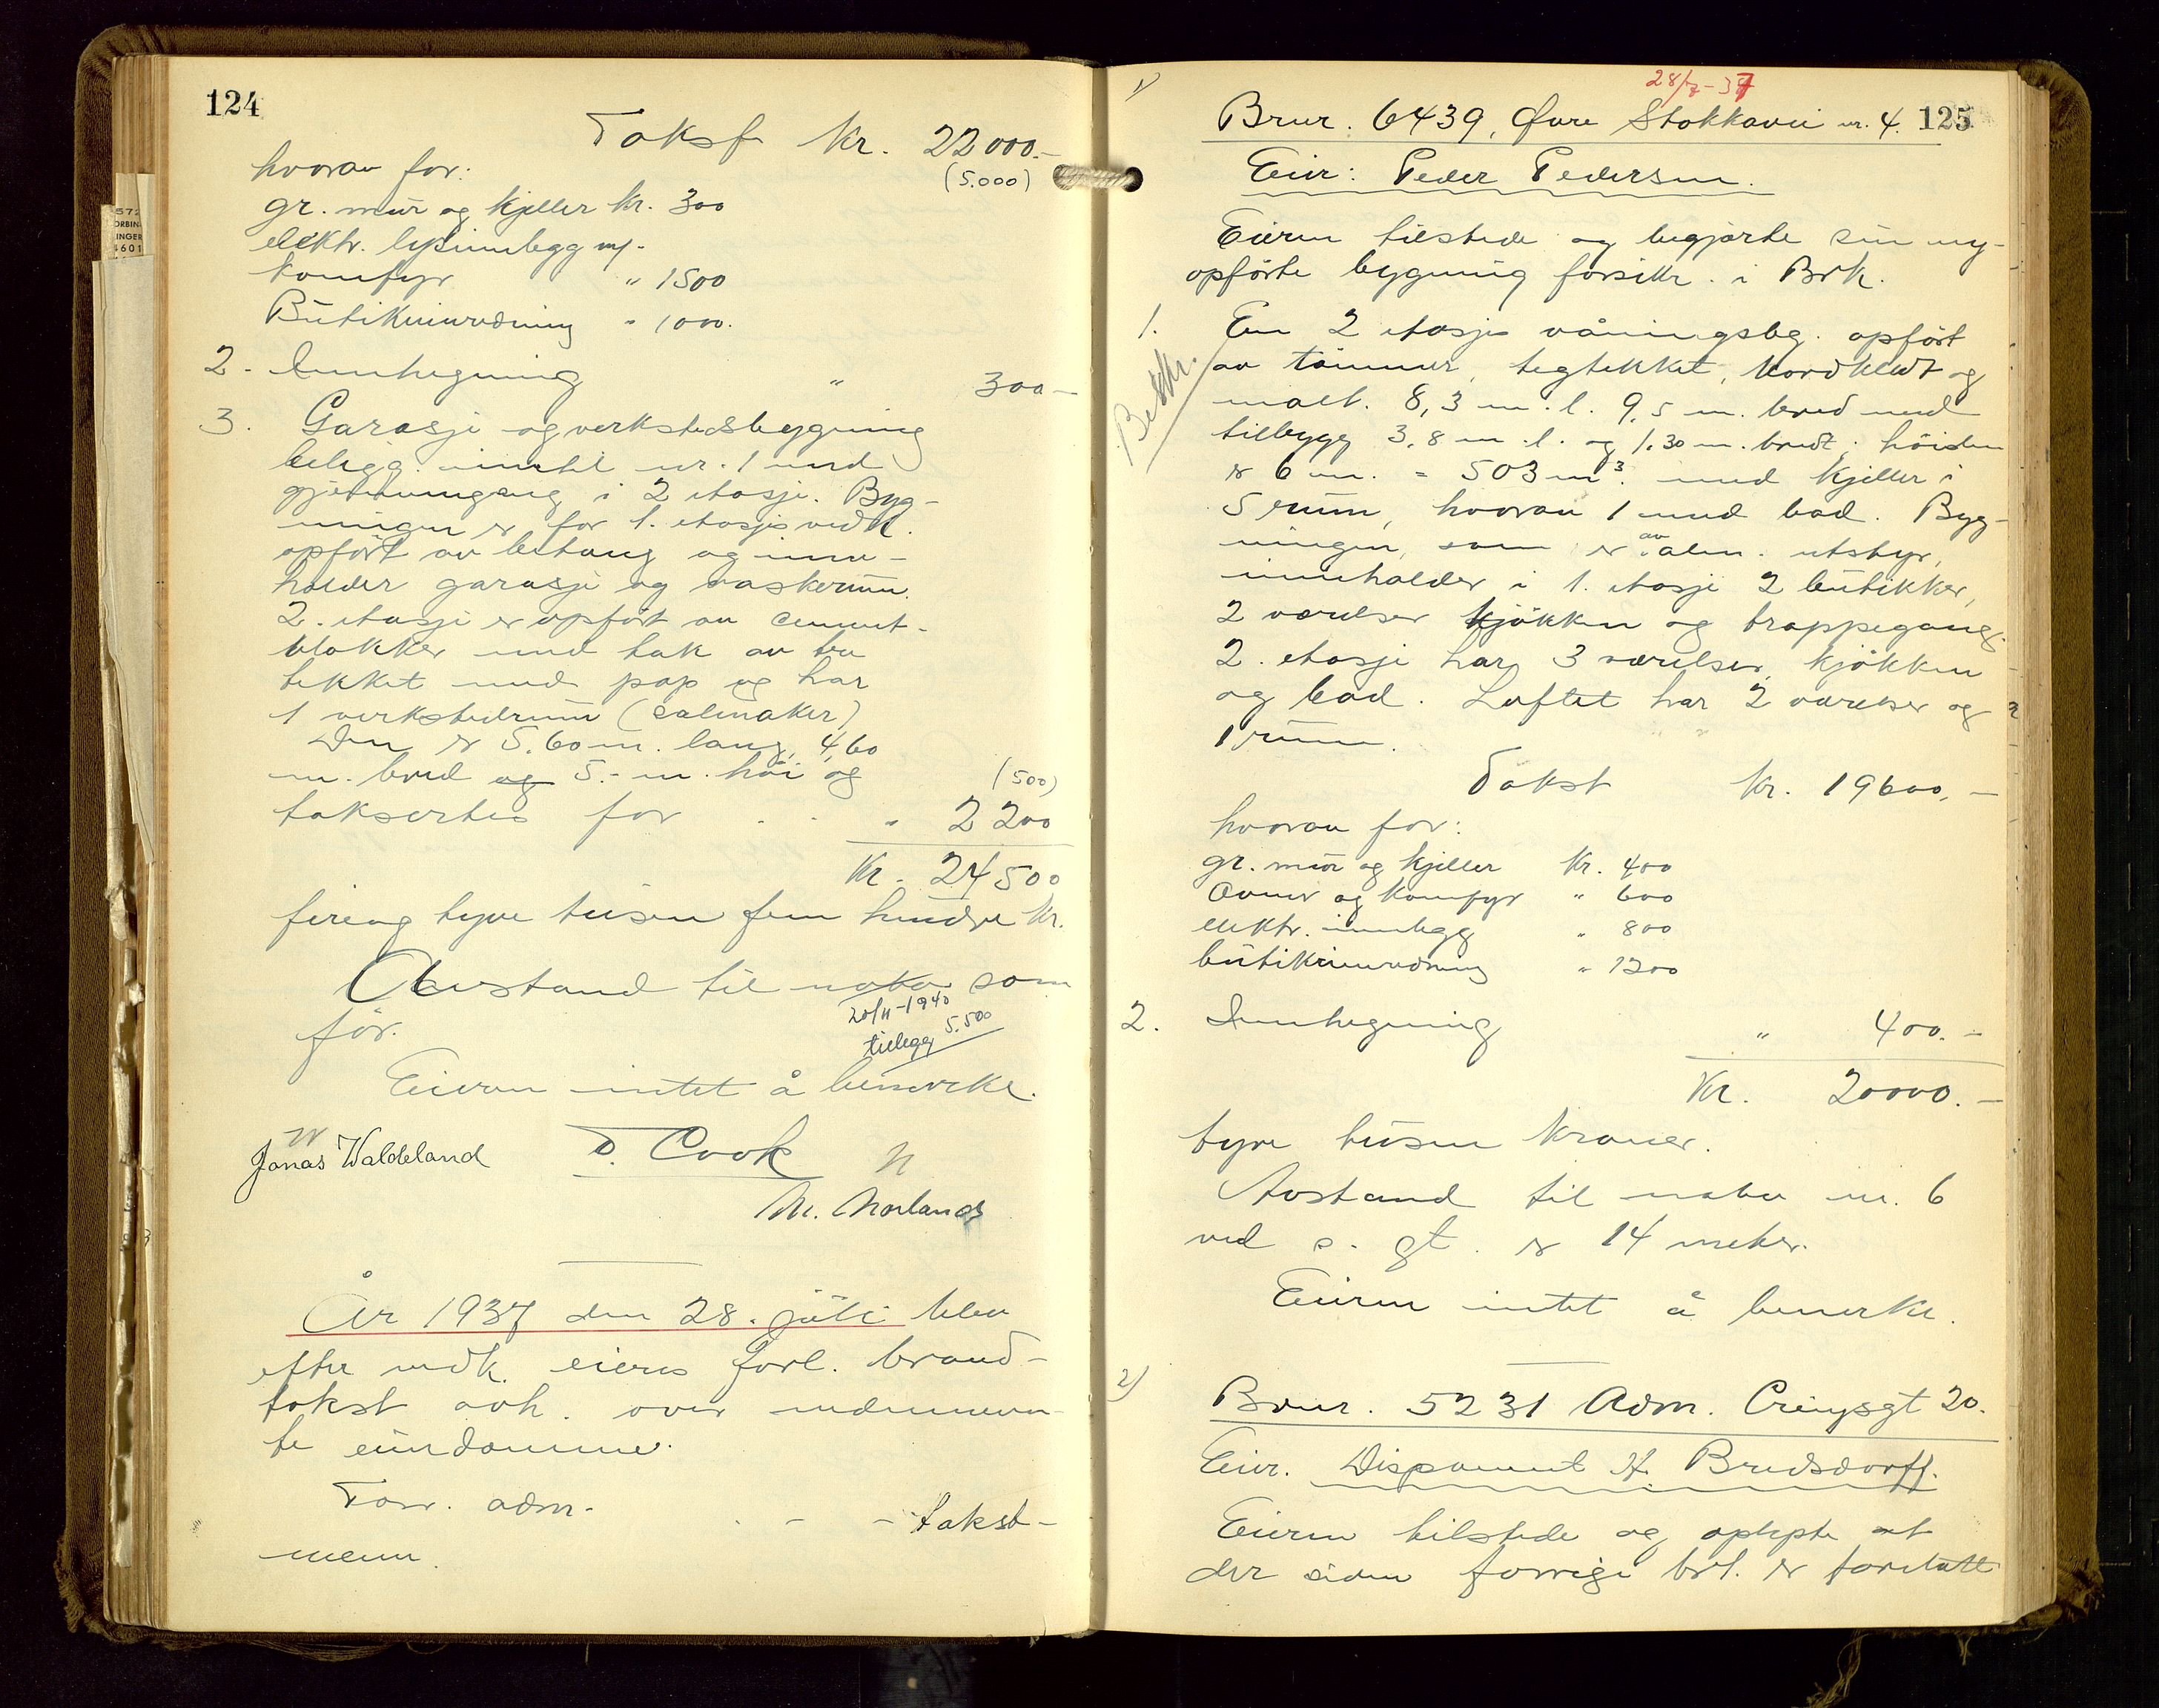 124
Takst kr. 22000.-
hvorav for: (5.000)
gr. mur og kjeller kr. 300
elektr. lysinnlegg m/-
komfyr " 1500
Butikkinnredning " 1000.
2. Innhegning " 300-
3. Garasje og verkstedsbygning
beligg. inntil nr. 1 med
gjennemgang i 2 etasje. Byg-
ningen er for 1. etasjes vedk.
opført av betong og inne-
holder garasje og vaskerum.
2. etasje er opført av cement-
blokker med tak av tre
tekket med pap og har
1 verkstedrum (salmaker)
Den er 5.60 m. lang, 4,60
m. bred og 5.- m. høi og (500)
taksertes for . . " 2200
Kr. 24500
fireog tyve tusen fem hundre kr.
Avstand til nabo som
før. 20/11-1940
tillegg 5.500
Eieren intet å bemerke.
Jonas Waldeland D. Cook N
M. Norland
År 1937 den 28. juli blev
efter vedk. eieres forl. brand-
takst avh. over nedennevn-
te eiendomme.
Forr. adm. - - - takst-
menn.
28/7-37
1) Brnr. 6439, Øvre Stokkavei nr. 4. 125
Eier: Peder Pedersen.
Eieren tilstede og begjærte sin ny-
opførte bygning forsikr. i Brk.
1. En 2 etasjes våningsbg. opført
Beskr. av tømmer, tegltekket, bordklædt og
malt. 8,3 m. l. 9,5 m. bred med
tilbygg 3,8 m. l. og 1.30 m. bredt, høiden
er 6 m. = 503 m³. med kjeller i
5 rum, hvorav 1 med bad. Byg-
ningen, som er av alm. utstyr,
inneholder i 1. etasje 2 butikker,
2 værelser kjøkken og trappegang.
2. etasje har 3 værelser, kjøkken
og bad. Loftet har 2 værelser og
1 rum.
Takst kr. 19600,-
hvorav for:
gr. mur og kjeller kr. 400
Ovner og komfyr " 600
elektr. innlegg " 800
butikkinnredning " 1200
2. Innhegning " 400.-
Kr. 20000.-
tyve tusen kroner.
Avstand til nabo nr. 6
ved s. gt. er 14 meter.
Eieren intet å bemerke.
2) Brnr. 5231 Adm. Cruysgt 20.
Eier. Disponent H. Bredsdorff.
Eieren tilstede og oplyste at
der siden forrige brt. er foretatt